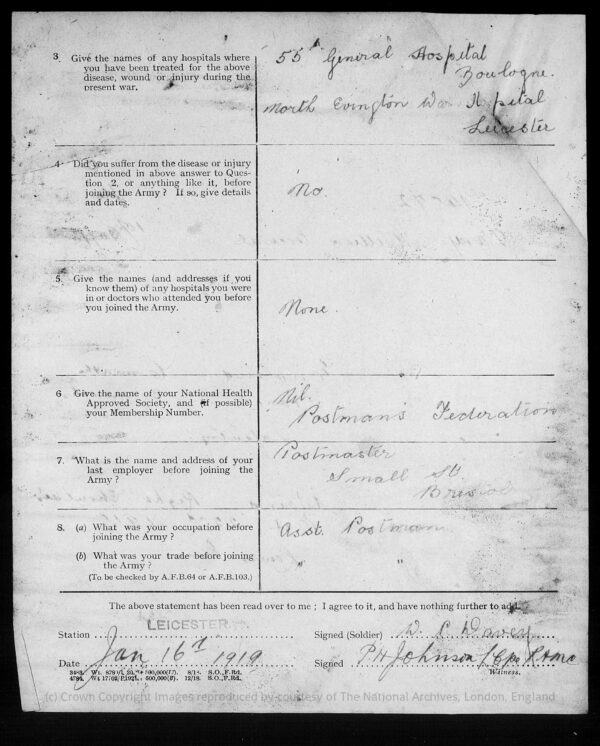 3 Give the names of any hospitals where
you have been treated for the above
disease, wound or injury during the
present war.
55 General Hospital
Boulogne.
North Evington War Hospital
Leicester
4. Did you suffer from the disease or injury
mentioned in above answer to Ques-
tion 2, or anything like it, before
joining the Army ? If so, give details
and dates.
No.
5. Give the names (and addresses if you
know them) of any hospitals you were
in or doctors who attended you before
you joined the Army.
None.
6 Give the name of your National Health
Approved Society, and (if possible)
your Membership Number.
Nil.
Postman's Federation
7. What is the name and address of your
last employer before joining the
Army ?
Postmaster
Small St
Bristol
8. (a) What was your occupation before
joining the Army ?
Asst. Postman
(b) What was your trade before joining
the Army ?
" "
(To be checked by A.F.B.64 or A.F.B.103.)
The above statement has been read over to me ; I agree to it, and have nothing further to add.
Station LEICESTER
Signed (Soldier)
Date Jan 16th 1919
Signed P H Johnson
Witness.
8/18. S.O., F.Rd.
500,000(8). 12/18. S.O., F.Rd.
(c) Crown Copyright Images reproduced by courtesy of The National Archives, London, England